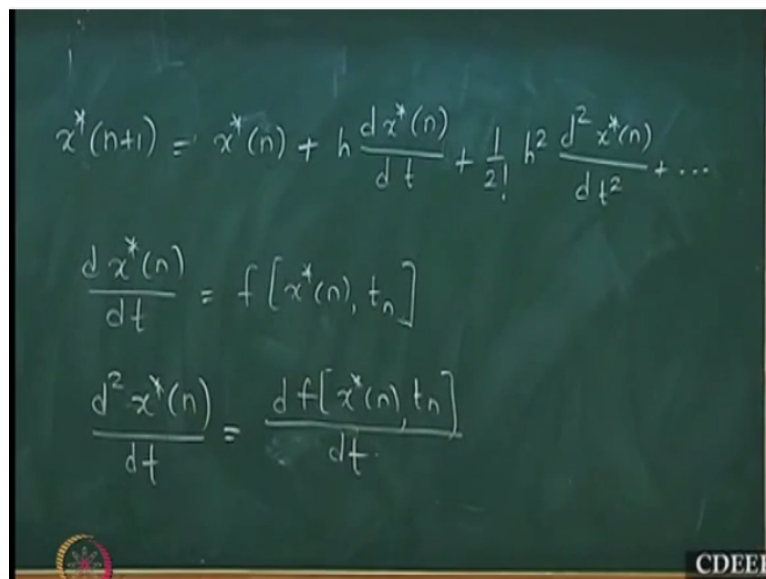 x*(n+1) = x*(n) + h dx*(n)/dt + 1/2! h² d²x*(n)/dt² + ...
dx*(n)/dt = f[x*(n), tn]
d²x*(n)/dt = df[x*(n), tn]/dt
CDEEP